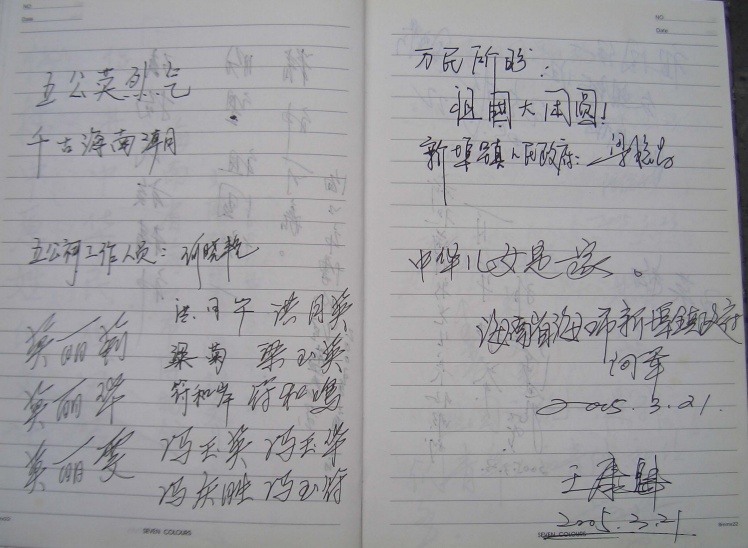 NO.
Date
五公英烈气
千古海南潮
五公祠工作人员：
洪月英
莫丽莉
梁菊 梁玉英
莫丽华
符和岸 符和
莫丽雯
冯玉英 冯玉
冯庆胜 冯玉
SEVEN COLOURS
NO.
Date
万民所盼：
祖國大团圆！
新埠镇人民政府：
中华儿女是一家。
海南省海口市新埠镇政府
2005.3.21.
王康
2005.3.21
SEVEN COLOURS